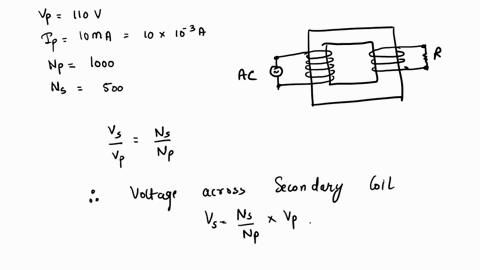 Vp = 110 V
Ip = 10mA = 10 × 10⁻³ A
Np = 1000
Ns = 500
AC
R
Vs/Vp = Ns/Np
∴ Voltage across Secondary Coil
Vs = Ns/Np × Vp .